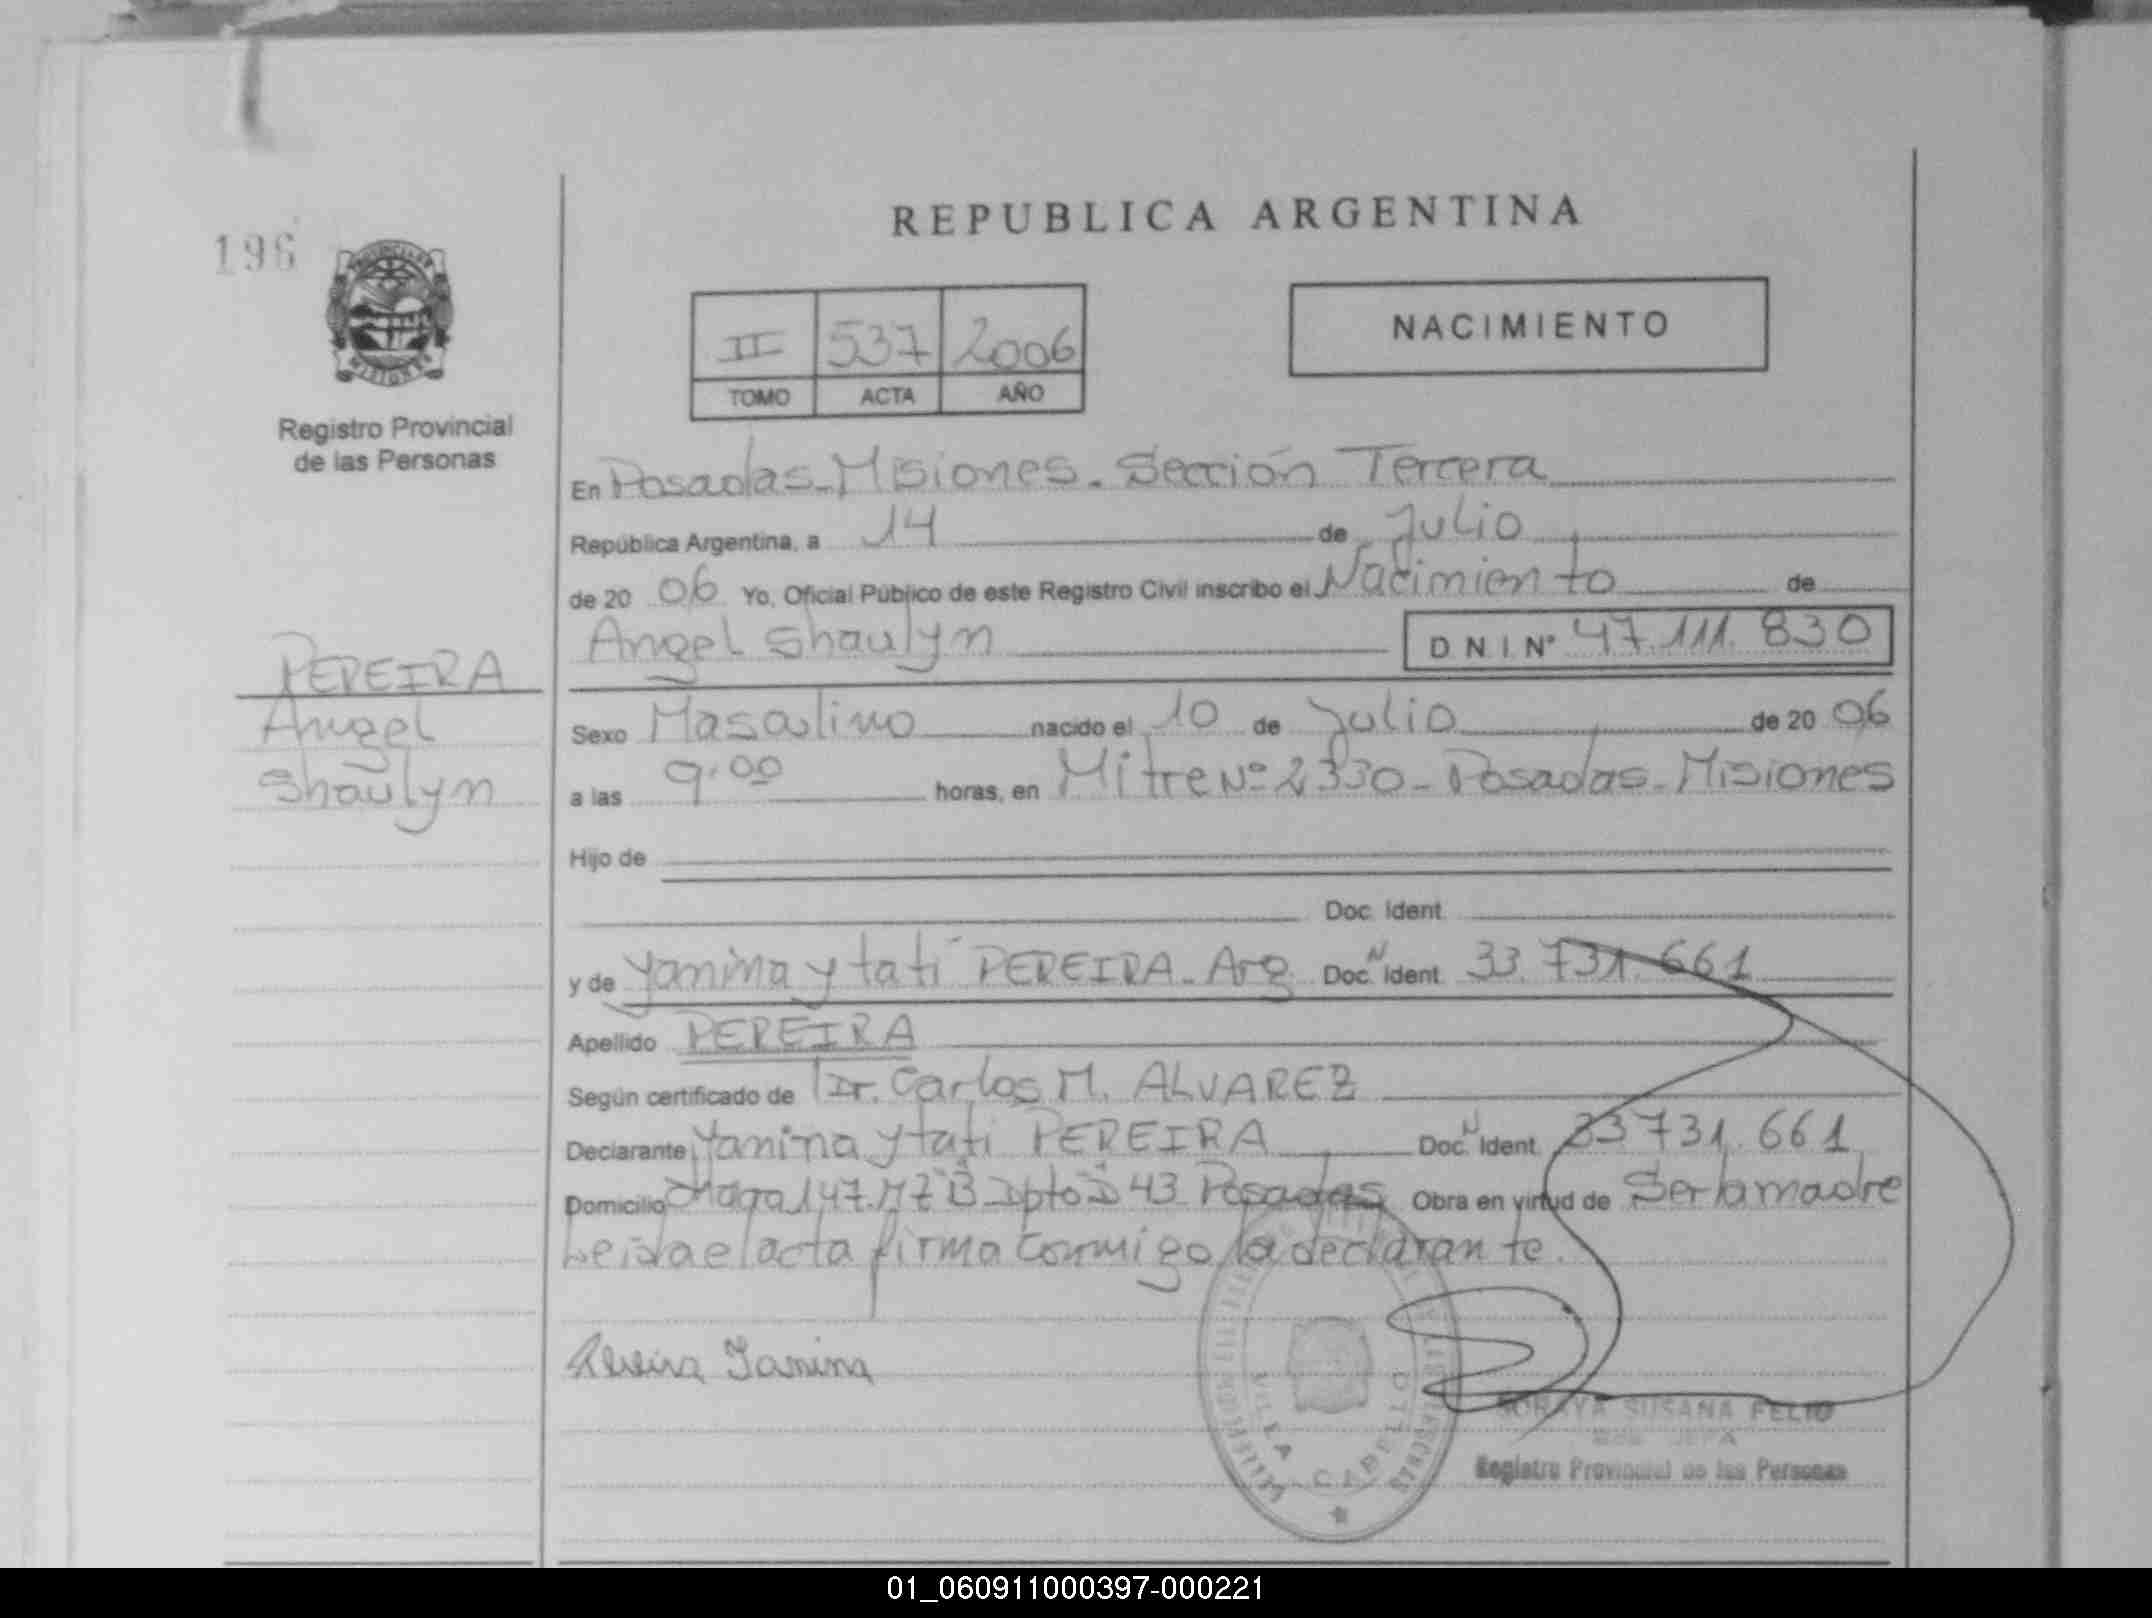 REPUBLICA ARGENTINA
196
NACIMIENTO
II 537 2006
TOMO ACTA AÑO
MISIONES
Registro Provincial
de las Personas
En Posadas - Misiones. Sección Tercera
República Argentina, a 14 de Julio
de 20 06 Yo, Oficial Público de este Registro Civil inscribo el Nacimiento de
Angel Shaulyn D N I Nº 47.111.830
PEREIRA
Angel
Shaulyn
Sexo Masculino nacido el 10 de Julio de 20 06
a las 9.00 horas, en Mitre Nº 2330 - Posadas - Misiones
Hijo de
Doc. Ident.
y de Yanina Ytatí PEREIRA - Arg. Doc. N Ident. 33.731.661
Apellido PEREIRA
Según certificado de Dr. Carlos M. ALVAREZ
Declarante Ytatí PEREIRA Doc. N Ident. 33731.661
Domicilio 147. Dpto 43 Posadas Obra en virtud de Ser la madre
Leida el acta firma conmigo la declarante.
Pereira Yanina
SORAYA SUSANA FELIU
JEFA
Registro Provincial de las Personas
VILLA CABELLO
01_060911000397-000221